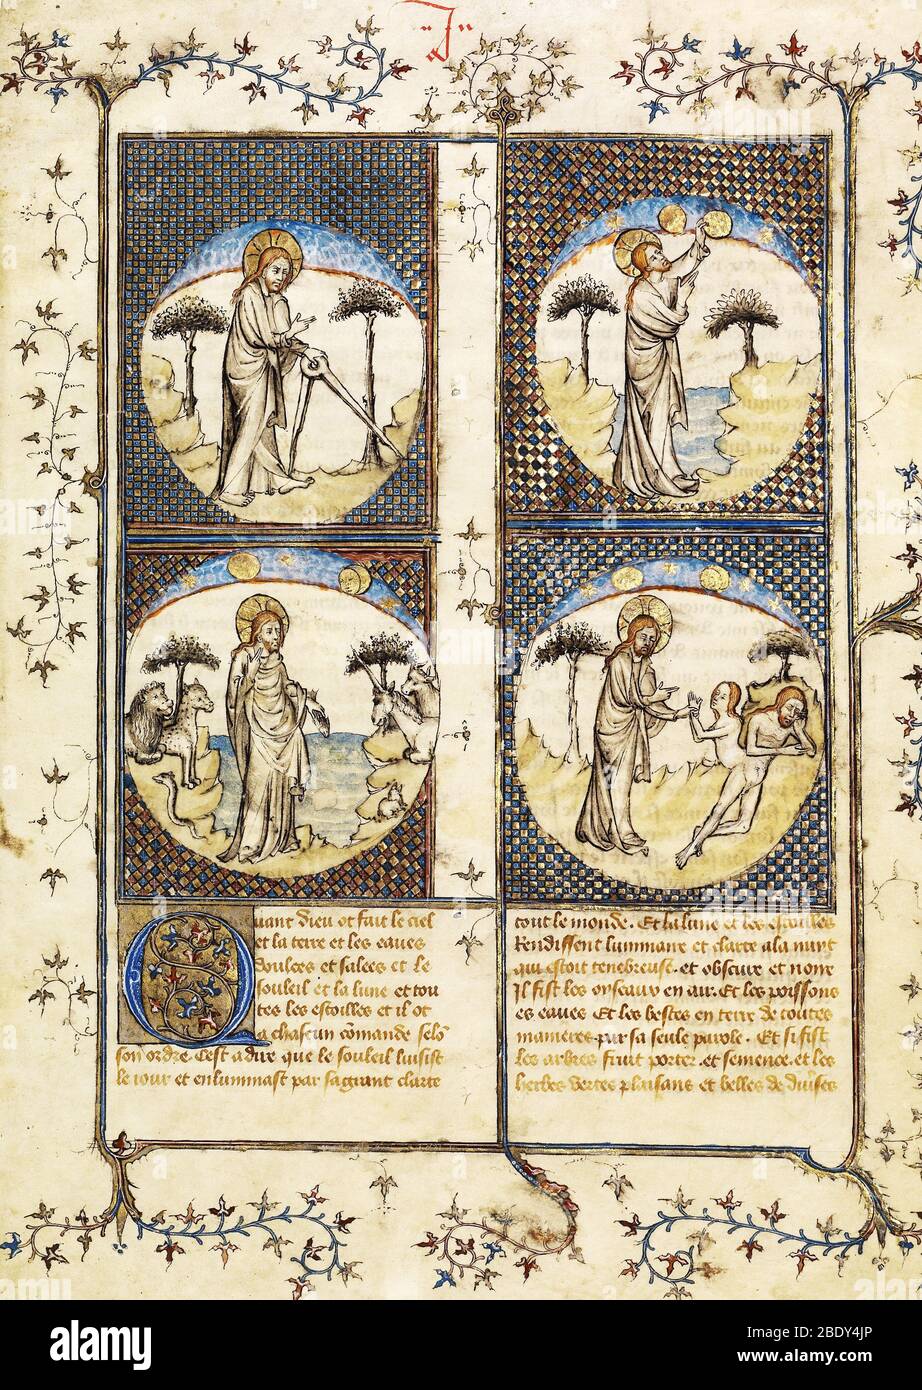 J
Quant dieu ot fait le ciel
et la terre et les eaues
doulces et salees et le
souleil et la lune et tou
tes les estoilles et il ot
a chascun cōmande selō
son ordre Cest a dire que le souleil luisist
le iour et enluminast par sa grant clarte
tout le monde. Et la lune et les estoilles
Rendissent luminaire et clarte a la nuyt
qui estoit tenebreuse. et obscure et noire
Il fist les oyseaux en air. Et les poissons
es eaues Et les bestes en terre de toutes
manieres. par sa seule parole. Et si fist
les arbres fruit porter. et semence. et les
herbes vertes plaisans et belles de diuses
alamy
Image ID: 2BDY4JP
www.alamy.com